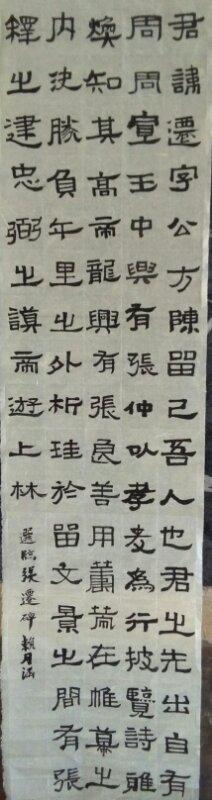 君諱遷字公方陳留己吾人也君之先出自有
周周宣王中興有張仲以孝友為行披覽詩雅
煥知其高帝龍興有張良善用籌策在帷幕之
内决勝負千里之外析珪於留文景之間有張
釋之建忠弼之謨帝遊上林
臨張遷碑 賴月